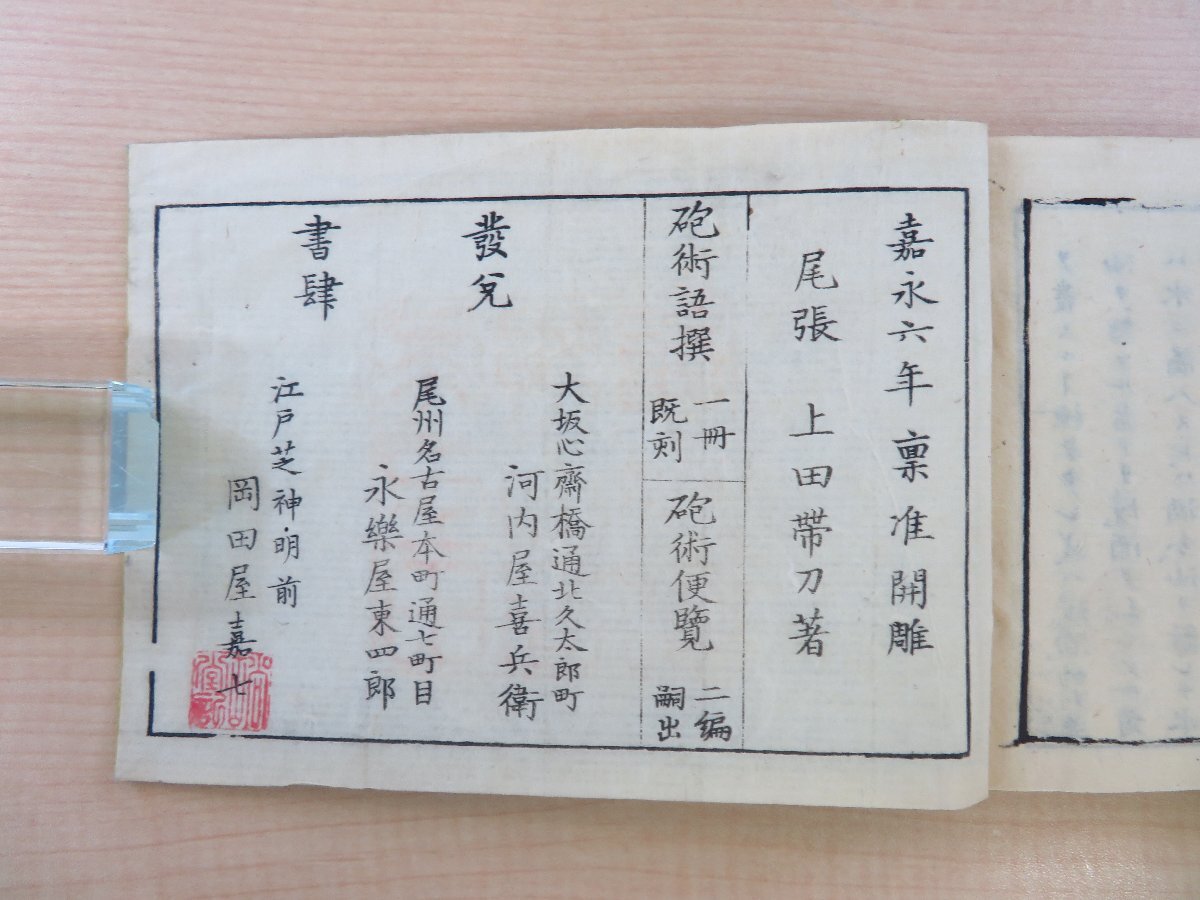 嘉永六年稟准開雕
尾張 上田帶刀著
砲術語撰 一冊
既刻
砲術便覽 二編
嗣出
發兌
大坂心齋橋通北久太郎町
河内屋喜兵衛
尾州名古屋本町通七町目
永樂屋東四郎
書肆
江戸芝神明前
岡田屋嘉七